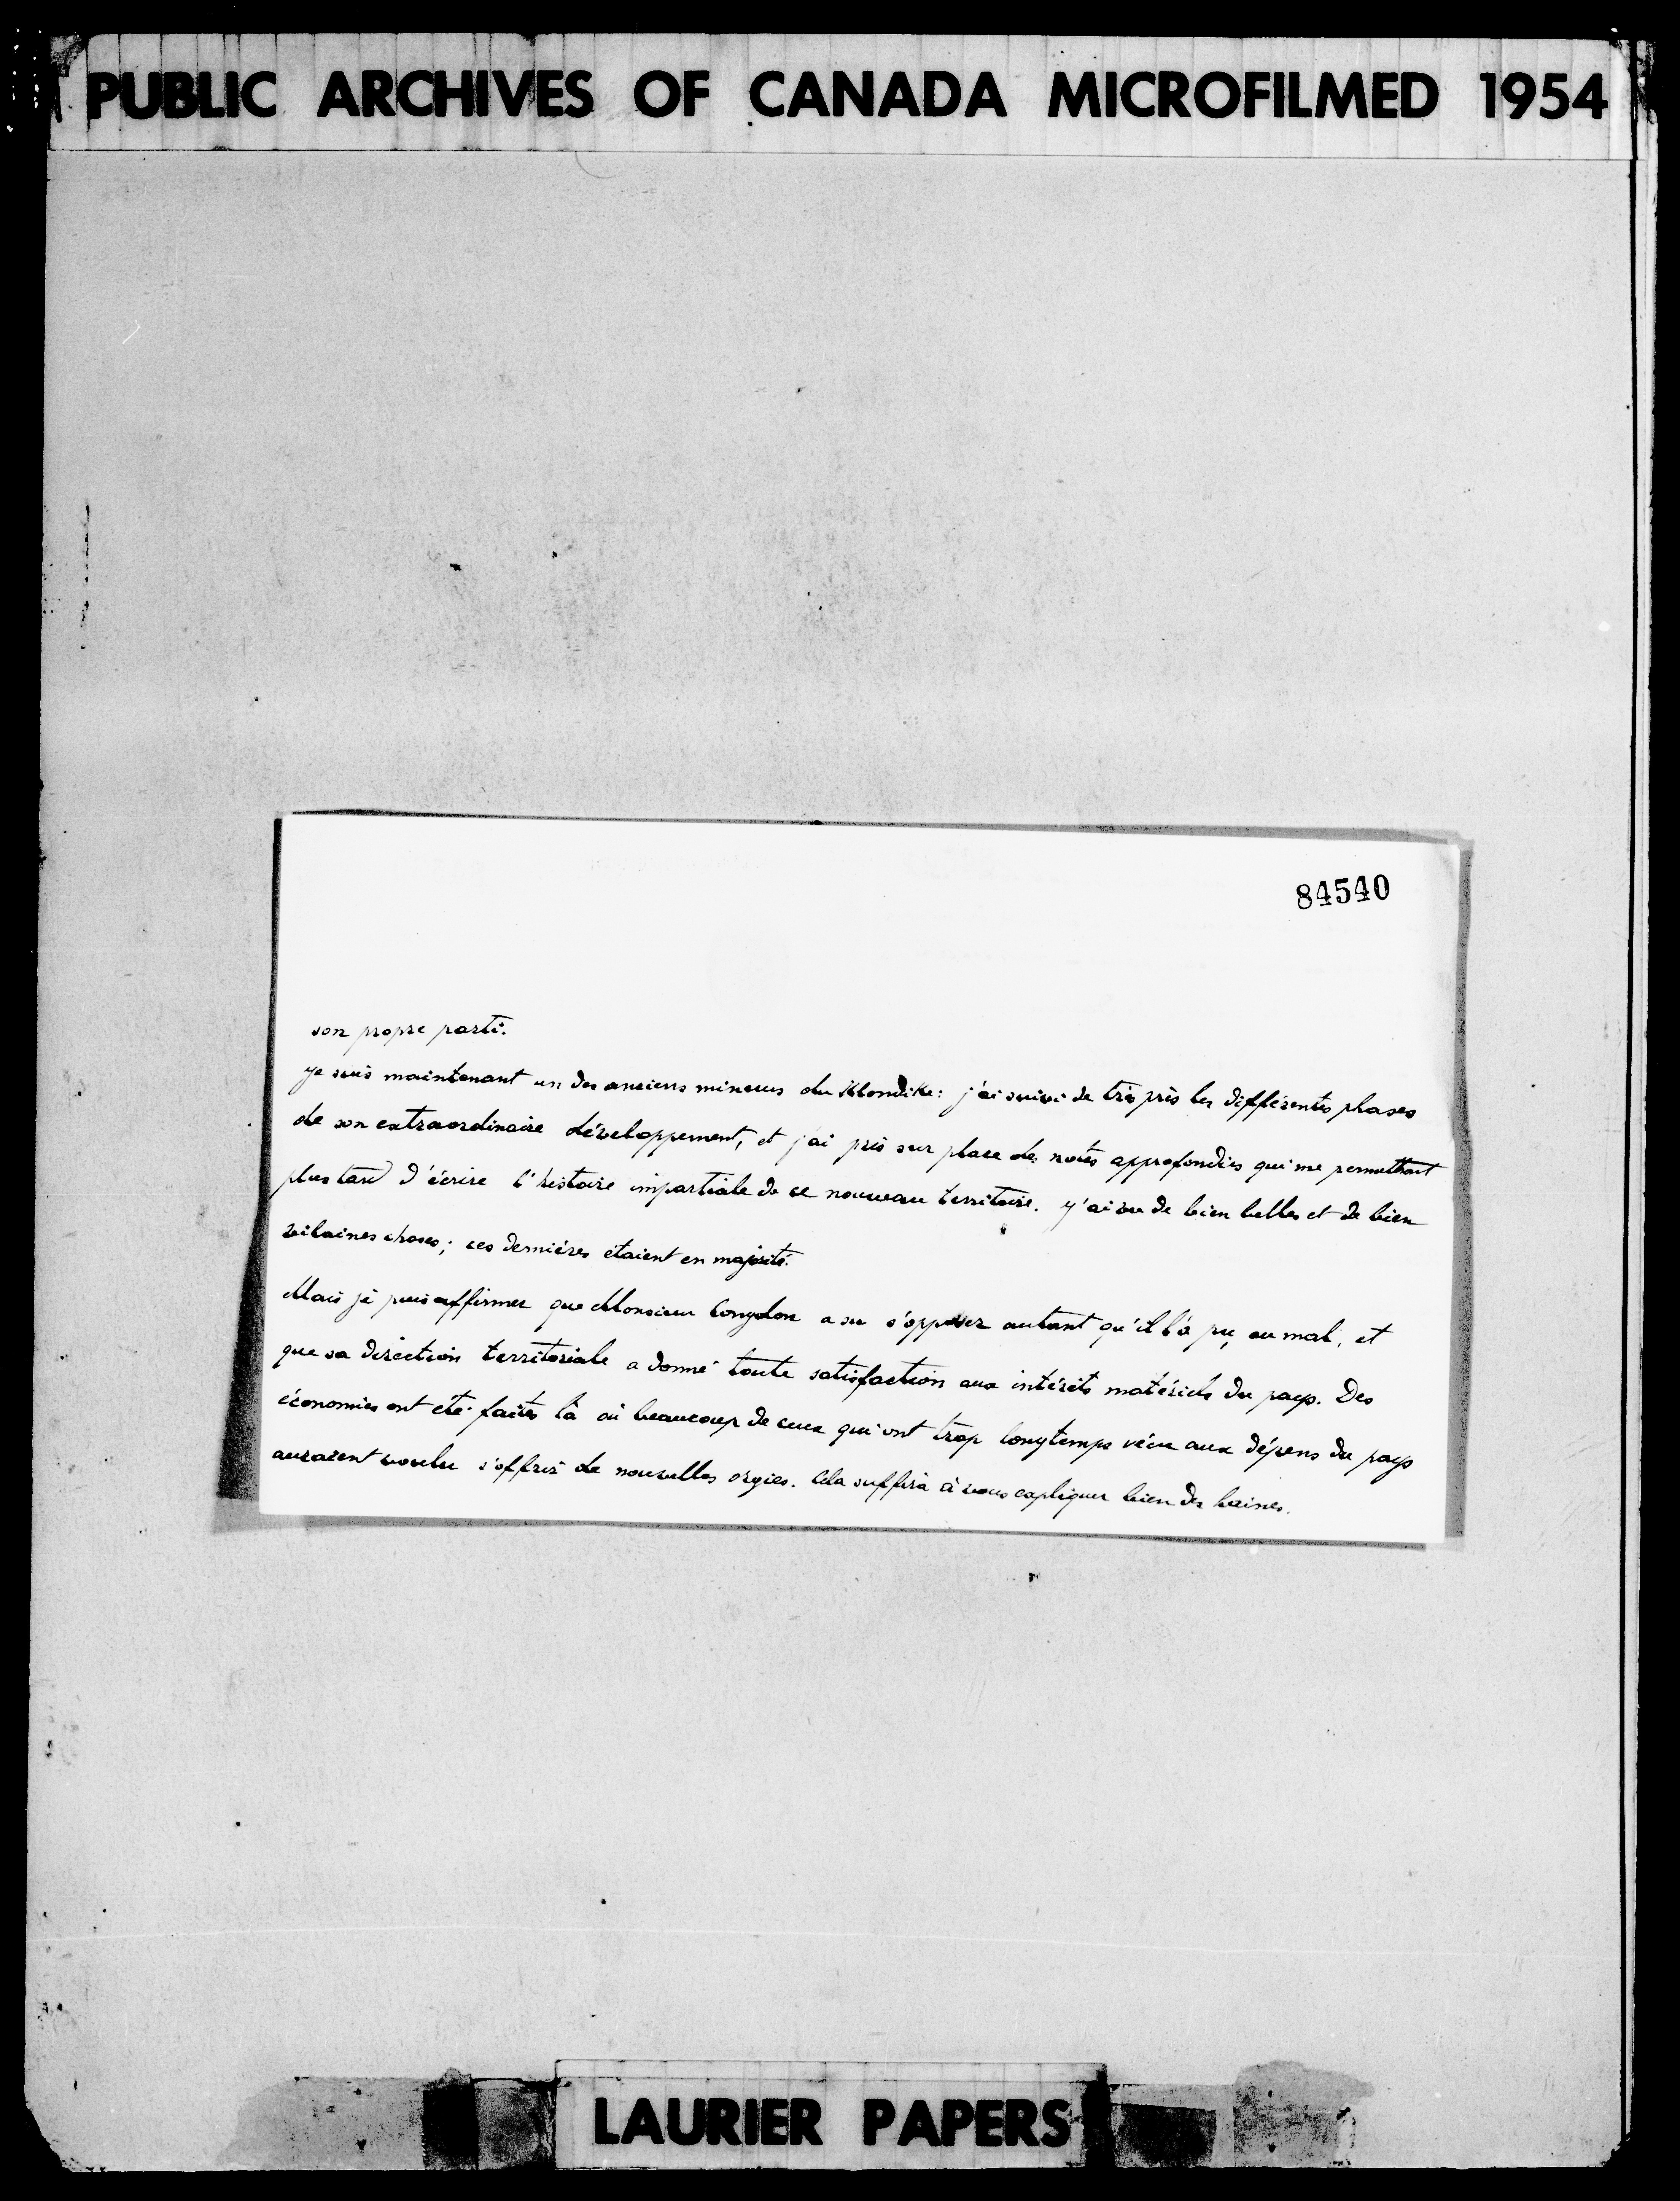 PUBLIC ARCHIVES OF CANADA MICROFILMED 1954
84540
son propre parti.
Je suis maintenant un des anciens mineurs du Klondike: j'ai suivi de très près les différentes phases
de son extraordinaire développement, et j'ai pris sur place des notes approfondies qui me permettront
plus tard d'écrire l'histoire impartiale de ce nouveau territoire. J'ai vu de bien belles et de bien
vilaines choses; ces dernières étaient en majorité.
Mais je puis affirmer que Monsieur Congdon a su s'opposer autant qu'il l'a pu, au mal, et
que sa direction territoriale a donné toute satisfaction aux intérêts matériels du pays. Des
économies ont été faites là où beaucoup de ceux qui ont trop longtemps vécu aux dépens du pays
auraient voulu s'offrir de nouvelles orgies. Cela suffira à vous expliquer bien des haines.
LAURIER PAPERS